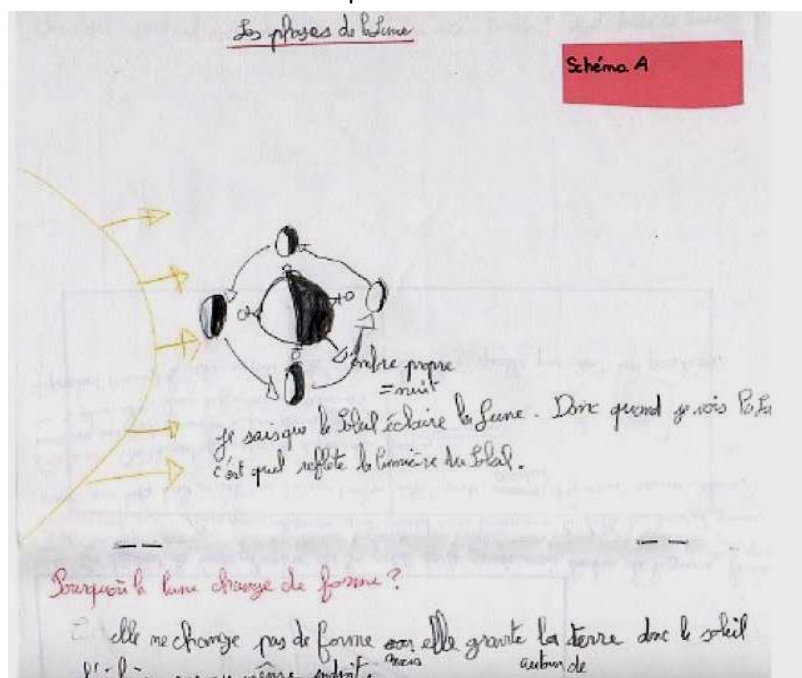 Les phases de la Lune
Schéma A
ombre propre
= nuit
Je sais que le Soleil éclaire la Lune. Donc quand je vois la
c'est quel reflète la lumière du Soleil.
Pourquoi la lune change de forme ?
elle ne change pas de forme mais elle gravite autour de la terre donc le soleil
même endroit.